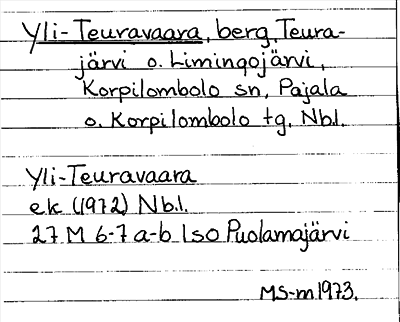 Yli-Teuravaara, berg, Teura-
järvi o. Limingojärvi,
Korpilombolo sn, Pajala
o. Korpilombolo tg, Nbl.
Yli-Teuravaara
ek (1972) Nbl.
27 M 6-7 a-b Iso Puolamajärvi
MS-m 1973.